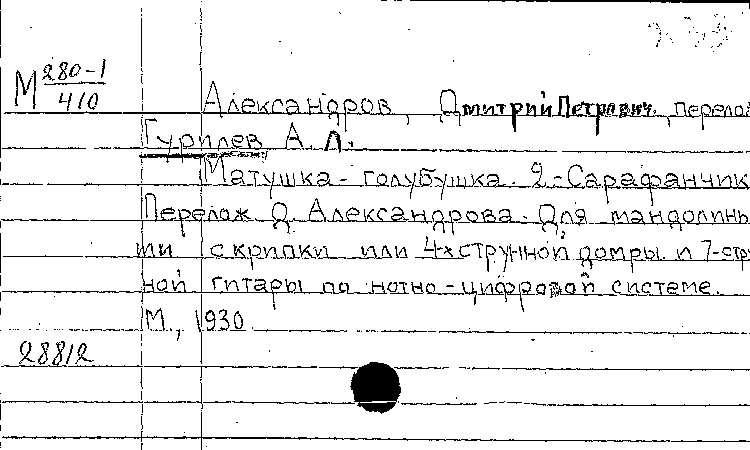 М 280-1
410
Александров, Дмитрий Петрович, перелож
Гурилев А. Л.
Матушка-голубушка. 2.-Сарафанчик
Перелож. Д. Александрова. Для мандолины
ли скрипки или 4-хструнной домры и 7-стру
ной гитары по нотно-цифровой системе.
М., 1930.
28812